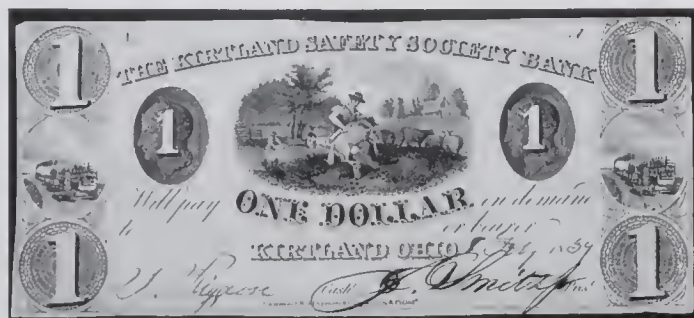 THE KIRTLAND SAFETY SOCIETY BANK
1 1
1 1
Will pay ONE DOLLAR on demand
to or bearer
KIRTLAND OHIO
Cash. J. Smith Jr
1 1